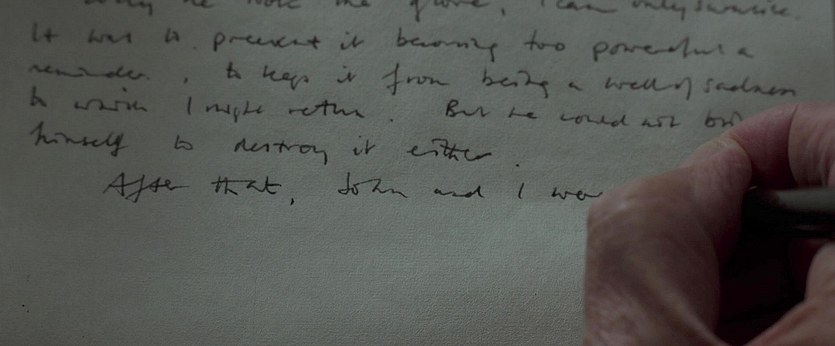 why he took the glove, I can only surmise.
It was to prevent it becoming too powerful a
reminder, to keep it from being a well of sadness
to which I might return. But he could not bri
himself to destroy it either.
After that, John and I wer